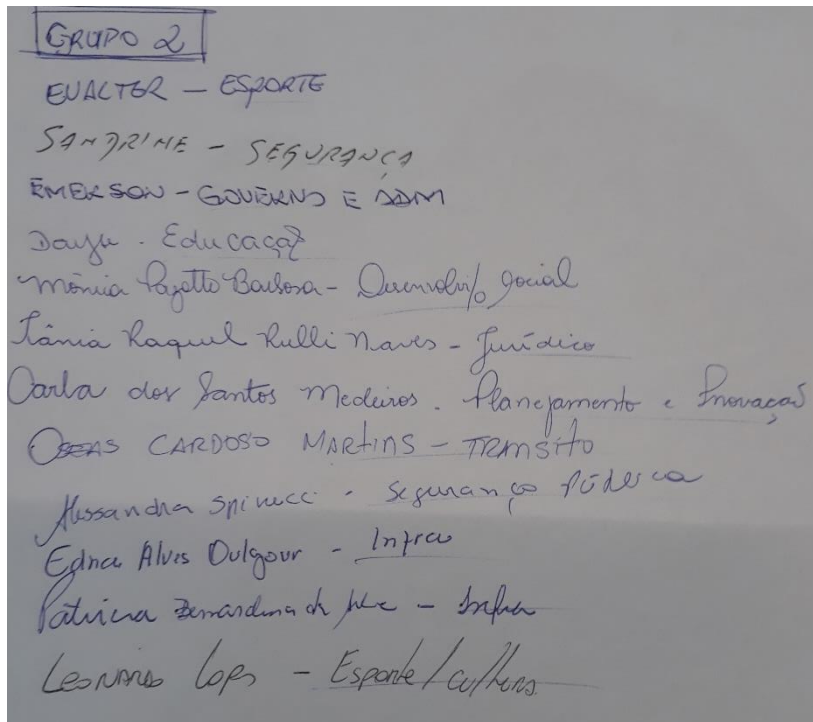 GRUPO 2
EUALTER - ESPORTE
SANDRINE - SEGURANÇA
EMERSON - GOVERNO E ADM
Dayse. Educação
Mônica Pazotto Barbosa - Desenvolv/o Social
Tânia Raquel Rulli Naves - Jurídico
Carla dos Santos Medeiros. Planejamento e Inovação
OSEAS CARDOSO MARTINS - TRANSITO
Alessandra Spinucci - Segurança Pública
Edna Alves - Infra
Patricia Bernardina de - Infra
Leonardo Lopes - Esporte/cultura